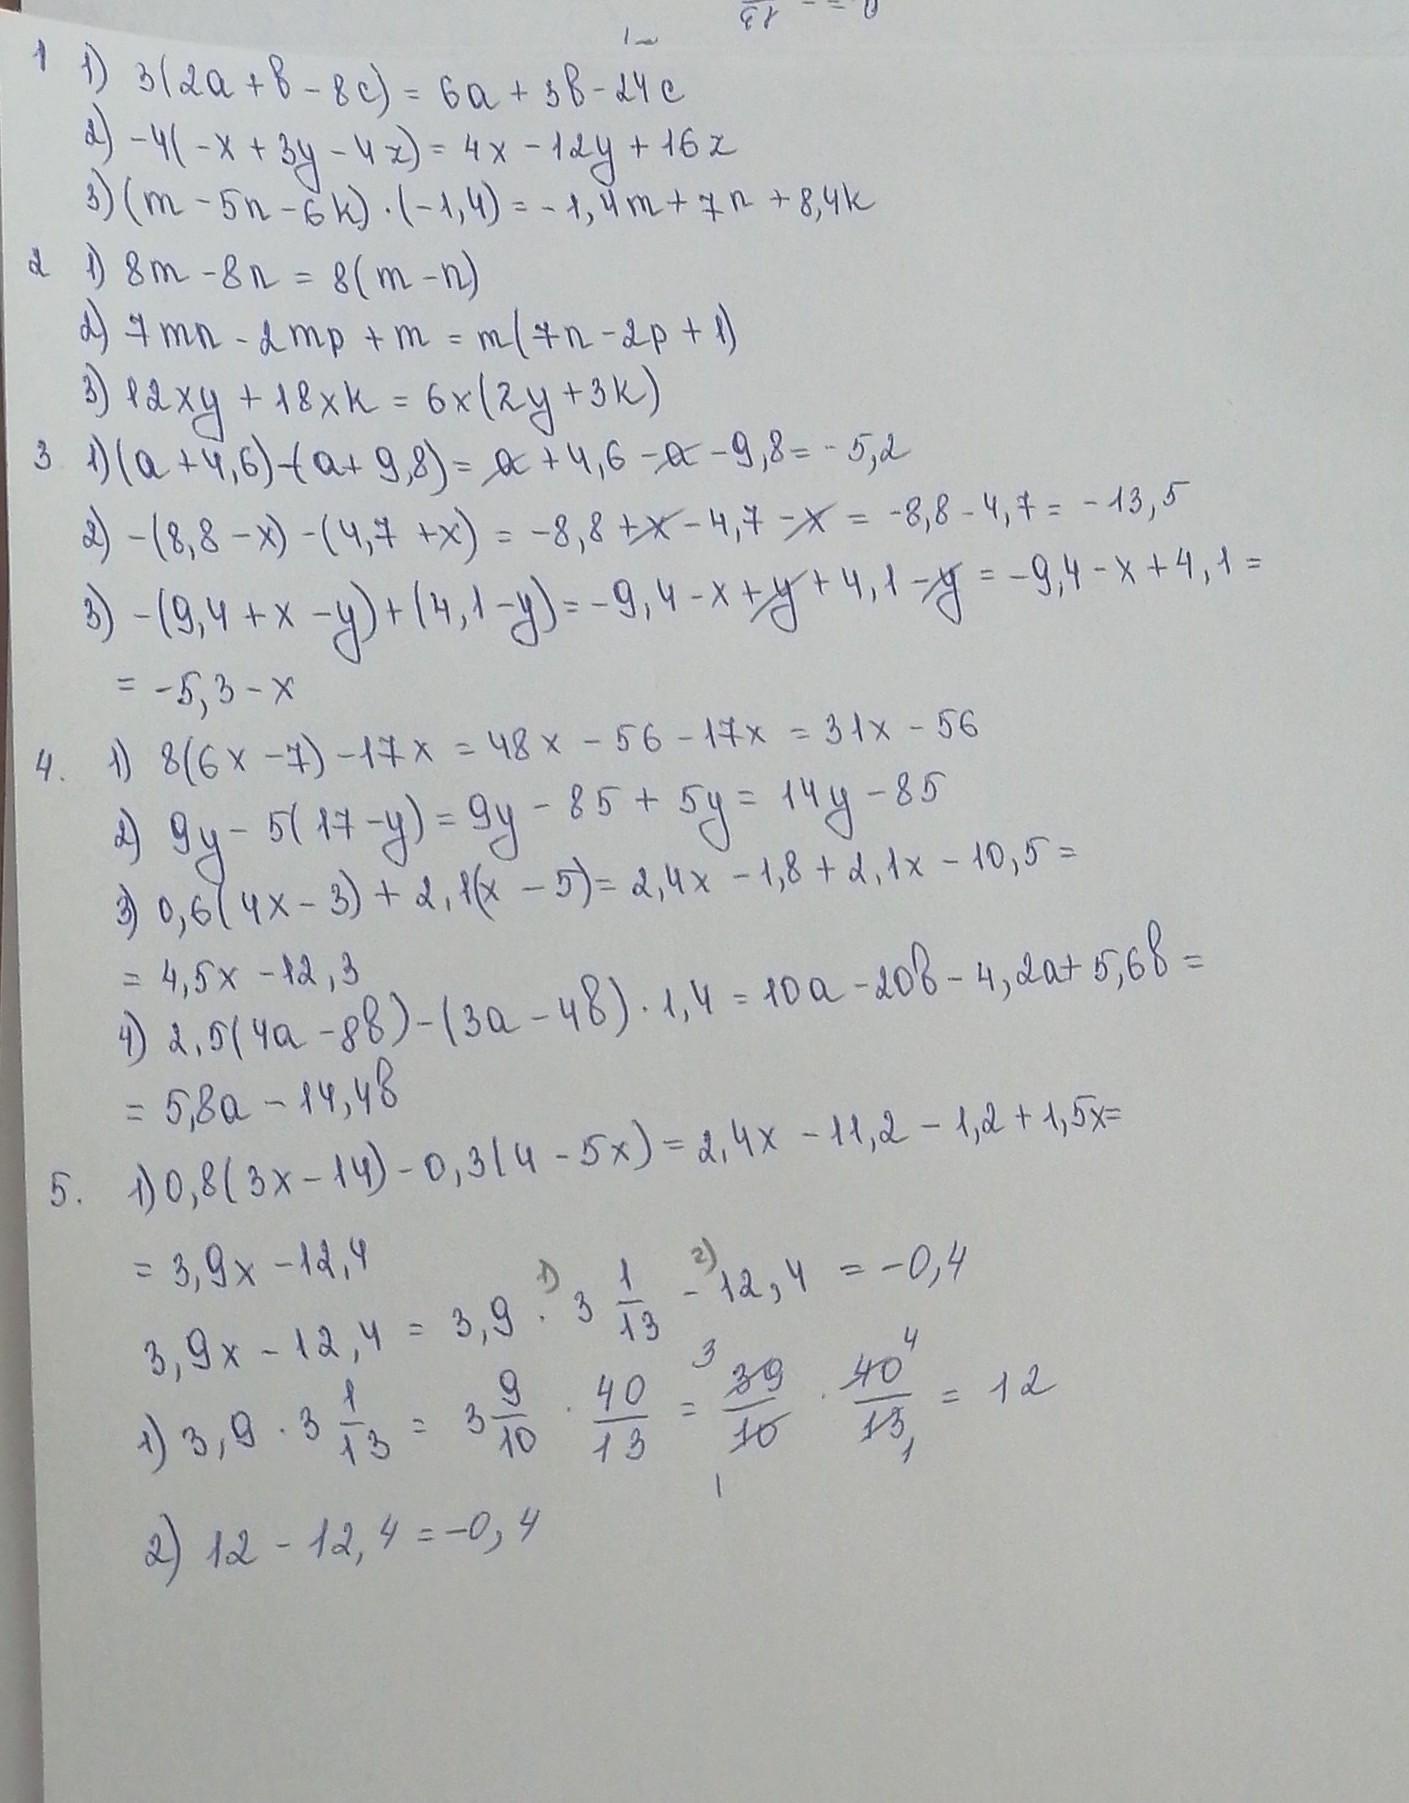 1 1) 3(2a + b - 8c) = 6a + 3b - 24c
2) -4(-x + 3y - 4z) = 4x - 12y + 16z
3) (m - 5n - 6k) · (-1,4) = -1,4m + 7n + 8,4k
2 1) 8m - 8n = 8(m - n)
2) 7mn - 2mp + m = m(7n - 2p + 1)
3) 12xy + 18xk = 6x(2y + 3k)
3 1) (a + 4,6) - (a + 9,8) = a + 4,6 - a - 9,8 = -5,2
2) -(8,8 - x) - (4,7 + x) = -8,8 + x - 4,7 - x = -8,8 - 4,7 = -13,5
3) -(9,4 + x - y) + (4,1 - y) = -9,4 - x + y + 4,1 - y = -9,4 - x + 4,1 =
= -5,3 - x
4. 1) 8(6x - 7) - 17x = 48x - 56 - 17x = 31x - 56
2) 9y - 5(17 - y) = 9y - 85 + 5y = 14y - 85
3) 0,6(4x - 3) + 2,1(x - 5) = 2,4x - 1,8 + 2,1x - 10,5 =
= 4,5x - 12,3
4) 2,5(4a - 8b) - (3a - 4b) · 1,4 = 10a - 20b - 4,2a + 5,6b =
= 5,8a - 14,4b
5. 1) 0,8(3x - 14) - 0,3(4 - 5x) = 2,4x - 11,2 - 1,2 + 1,5x =
= 3,9x - 12,4
3,9x - 12,4 = 3,9 · 3 1/13 - 12,4 = -0,4
1) 3,9 · 3 1/13 = 3 9/10 · 40/13 = 39/10 · 40/13 = 12
2) 12 - 12,4 = -0,4